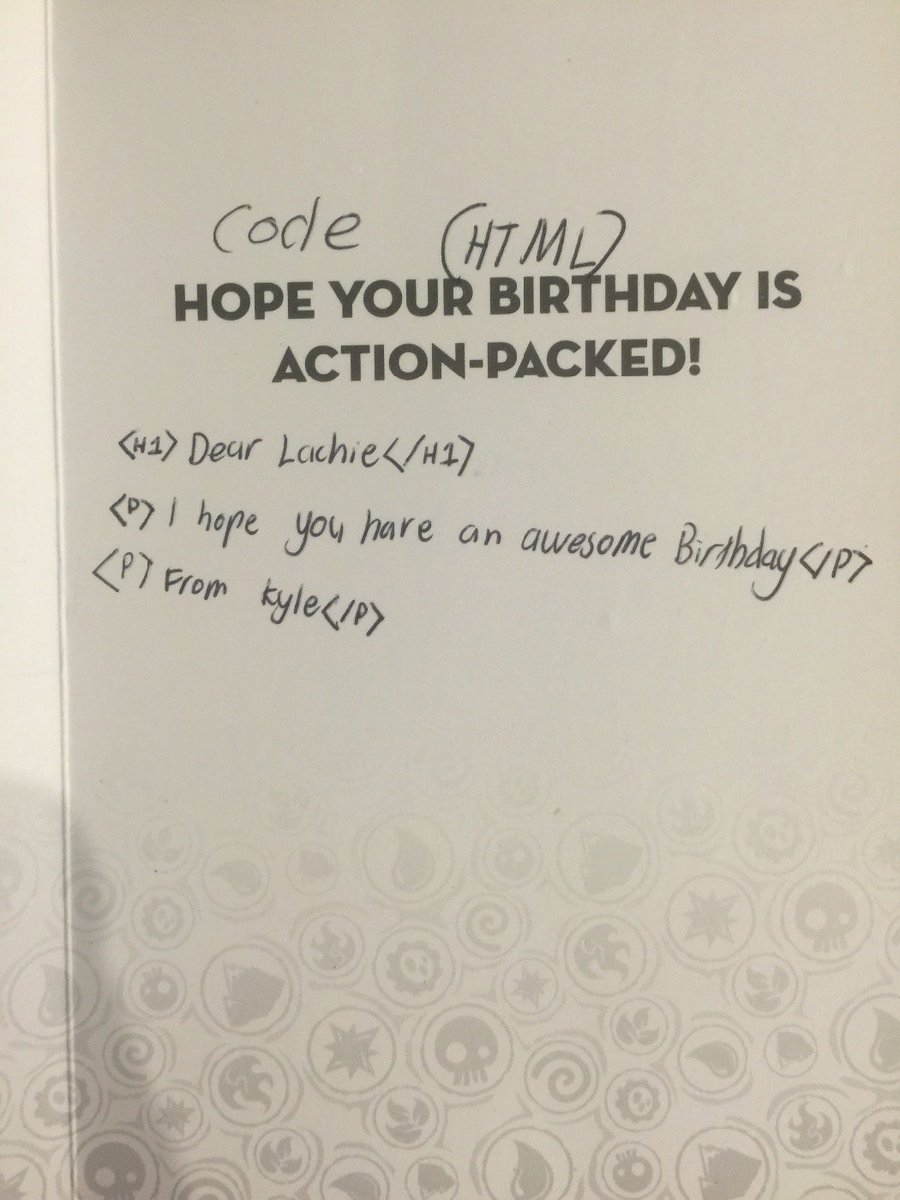 Code (HTML)
HOPE YOUR BIRTHDAY IS
ACTION-PACKED!
<H1> Dear Lachie</H1>
<P> I hope you have an awesome Birthday</P>
<P> From Kyle</P>